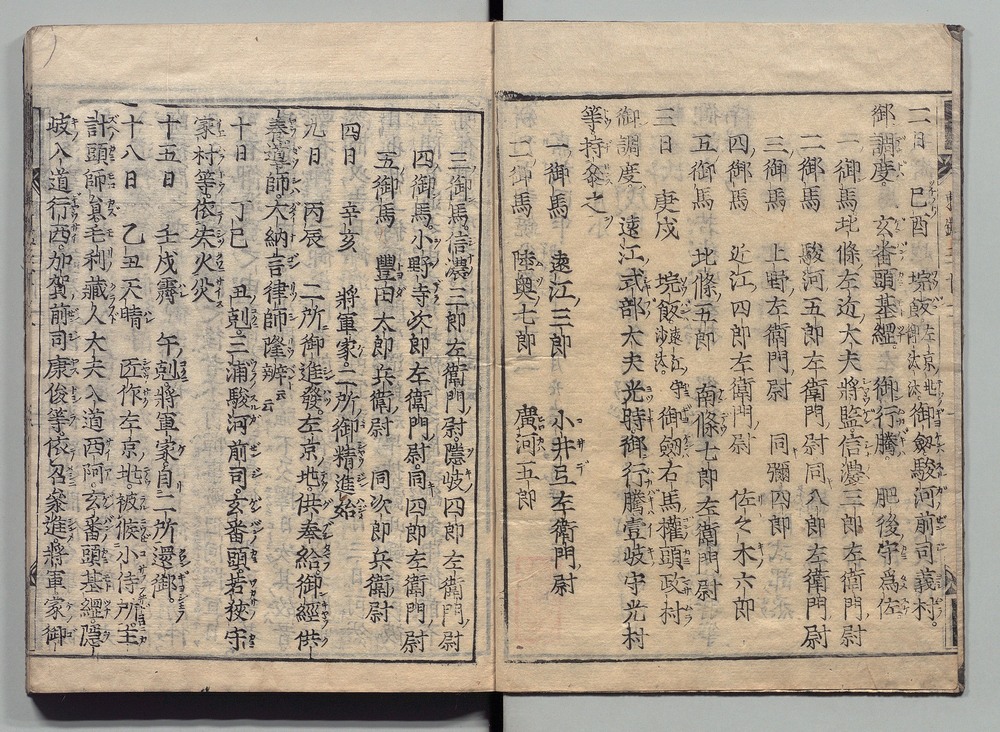 二日 己酉 垸飯 左京兆御沙汰 御劔駿河前司義村。
御調度。 玄番頭基綱 御行騰。 肥後守為佐
一御馬 北條左近大夫將監信濃三郎左衛門尉
二御馬 駿河五郎左衛門尉同八郎左衛門尉
三御馬 上野左衛門尉 同彌四郎
四御馬 近江四郎左衛門尉 佐々木六郎
五御馬 北條五郎 南條七郎左衛門尉
三日 庚戌 垸飯 遠江守沙汰。 御劔右馬權頭政村
御調度 遠江式部大夫光時御行騰壹岐守光村
等持参之
一御馬 遠江三郎 小井弖左衛門尉
二御馬 陸奥七郎 廣河五郎
三御馬。信濃三郎左衛門尉。隠岐四郎左衛門尉
四御馬。小野寺次郎左衛門尉。同四郎左衛門尉
五御馬 豐田太郎兵衛尉 同次郎兵衛尉
四日 辛亥 將軍家。二所御精進始
九日 丙辰 二所御進發。左京兆供奉給御經供
養導師。大納言律師隆辨云云
十日 丁巳 丑剋。三浦駿河前司。玄番頭。若狹守
家村等。依失火災
十五日 壬戌霽 午剋將軍家。自二所還御。
十八日 乙丑天晴 匠作左京兆。被候小侍所。主
計頭師員。毛利藏人大夫入道西阿。玄番頭基綱。隠
岐入道行西。加賀前司康俊等。依召參進。將軍家御